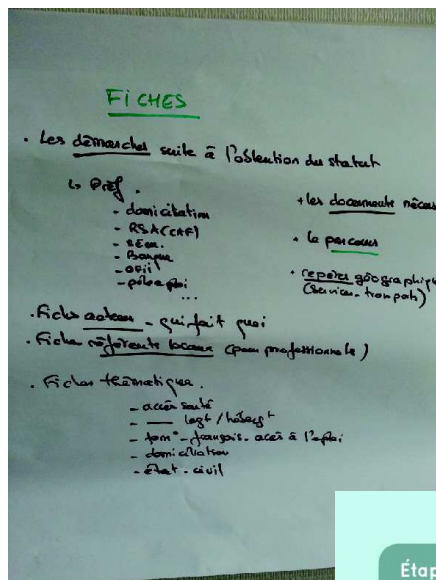 FICHES
. Les démarches suite à l'obtention du statut
↳ Préf.
- domiciliation
- RSA (CAF)
- Banque
- OFII
- pôle emploi
...
+ les documents
+ le parcours
+ repères géographiq
(services - transports)
. Fiches acteurs - qui fait quoi
. Fiche référents locaux (pour professionnels)
. Fiches thématique.
- accès santé
- — logt / héberg^t
- form° - français - accès à l'emploi
- domiciliation
- État-civil
Étap